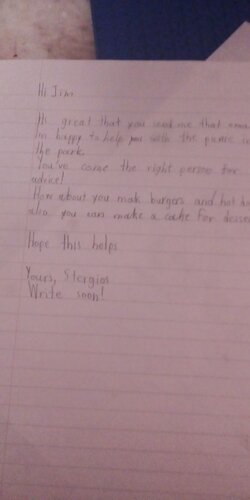 Hi Jim
Its great that you send me that ema
Im happy to help you with the picnic in
the park.
You've come the right person for
advice!
How about you mak burgers and hot do
also you can make a cake for desse
Hope this helps
Yours, Stergios
Write soon!